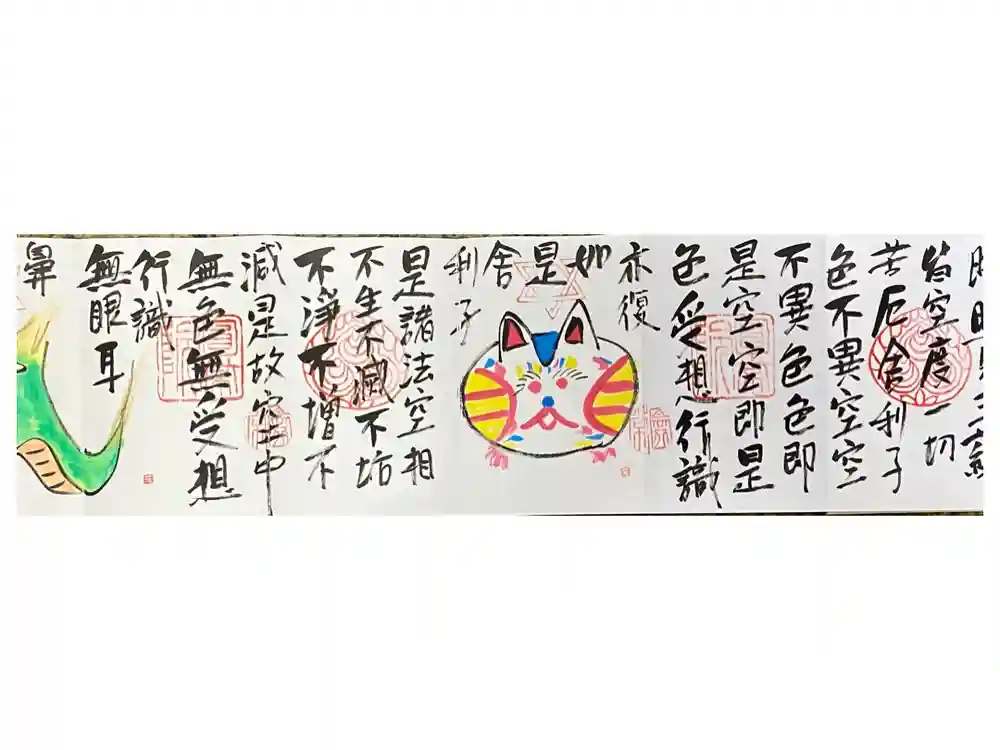 皆空度一切
苦厄舎利子
色不異空空
不異色色即
是空空即是
色受想行識
亦復
如
是
舎
利子
是諸法空相
不生不滅不垢
不淨不増不
減是故空中
無色無受想
行識
無眼耳
鼻